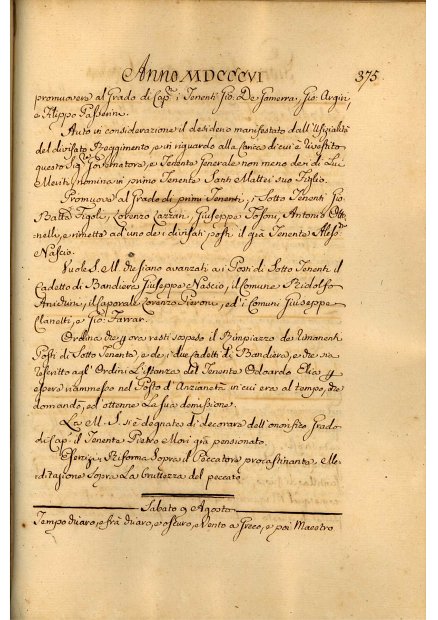 Anno MDCCCVI
375
promuovere al Grado di Cap.º i Tenenti Gio: De Gamerra, Gio: Argiri,
e Filippo Passerini.
Auto in considerazione il desiderio manifestato dall'Ufizialità
del divisato Reggimento, e in riguardo alla Carica di cui è rivestito
questo Sig.e Governatore, e Tenente Generale non meno che di Lui
Meriti, nomina in primo Tenente Santi Mattei suo Figlio.
Promuove al Grado di primi Tenenti, i Sotto Tenenti Gio:
Batta Figoli, Lorenzo Cazzari, Giuseppe Tosoni, Antonio
e rimette ad uno de i divisati posti il già Tenente
Nascio.
Vuole S. M. che siano avanzati a i Posti di Sotto Tenenti il
Cadetto di Bandiera Giuseppe Nascio, il Comune Ridolfo
il Caporale Lorenzo Pieroni, ed i Comuni Giuseppe
e Gio: Farrar.
Ordina che p ora resti sospeso il Rimpiazzo de Rimanenti
Posti di Sotto Tenente, e de i due Cadetti di Bandiera, e che sia
referito agl'Ordini L'Istanza del Tenente Odoardo Elia p
essere riammesso nel Posto d'Anzianità in cui era al tempo, che
domandò, ed ottenne La sua demissione.
La M. S. si è degnata di decorare dell'onorifico Grado
di Cap.º il Tenente Pietro Mori già pensionato.
Esercizi, e Riforma Sopra il Peccatore procastinante e Me-
ditazione Sopra La bruttezza del peccato.
Sabato 9 Agosto
Tempo chiaro, e frà chiaro, e oscuro, e Vento a Greco, e poi Maestro